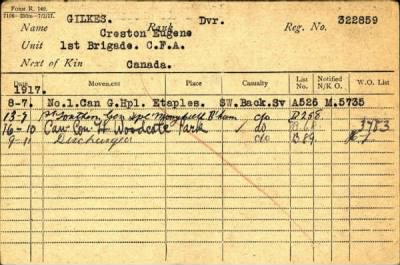 FORM R. 149.
GILKES. Dvr.
Name Rank Reg. No. 322859
Creston Eugene
Unit 1st Brigade. C.F.A.
Next of Kin Canada.
Date Movement Place Casualty List No. Notified N/K O. W.O. List
1917.
8-7. No.1.Can G.Hpl. Etaples. SW.Back.Sv A526 M.5735
13-9 Gen Hpl B'ham c/o D258
16-10 Can Con H Woodcote Park do 3783
9-11 Discharged c/o B89.